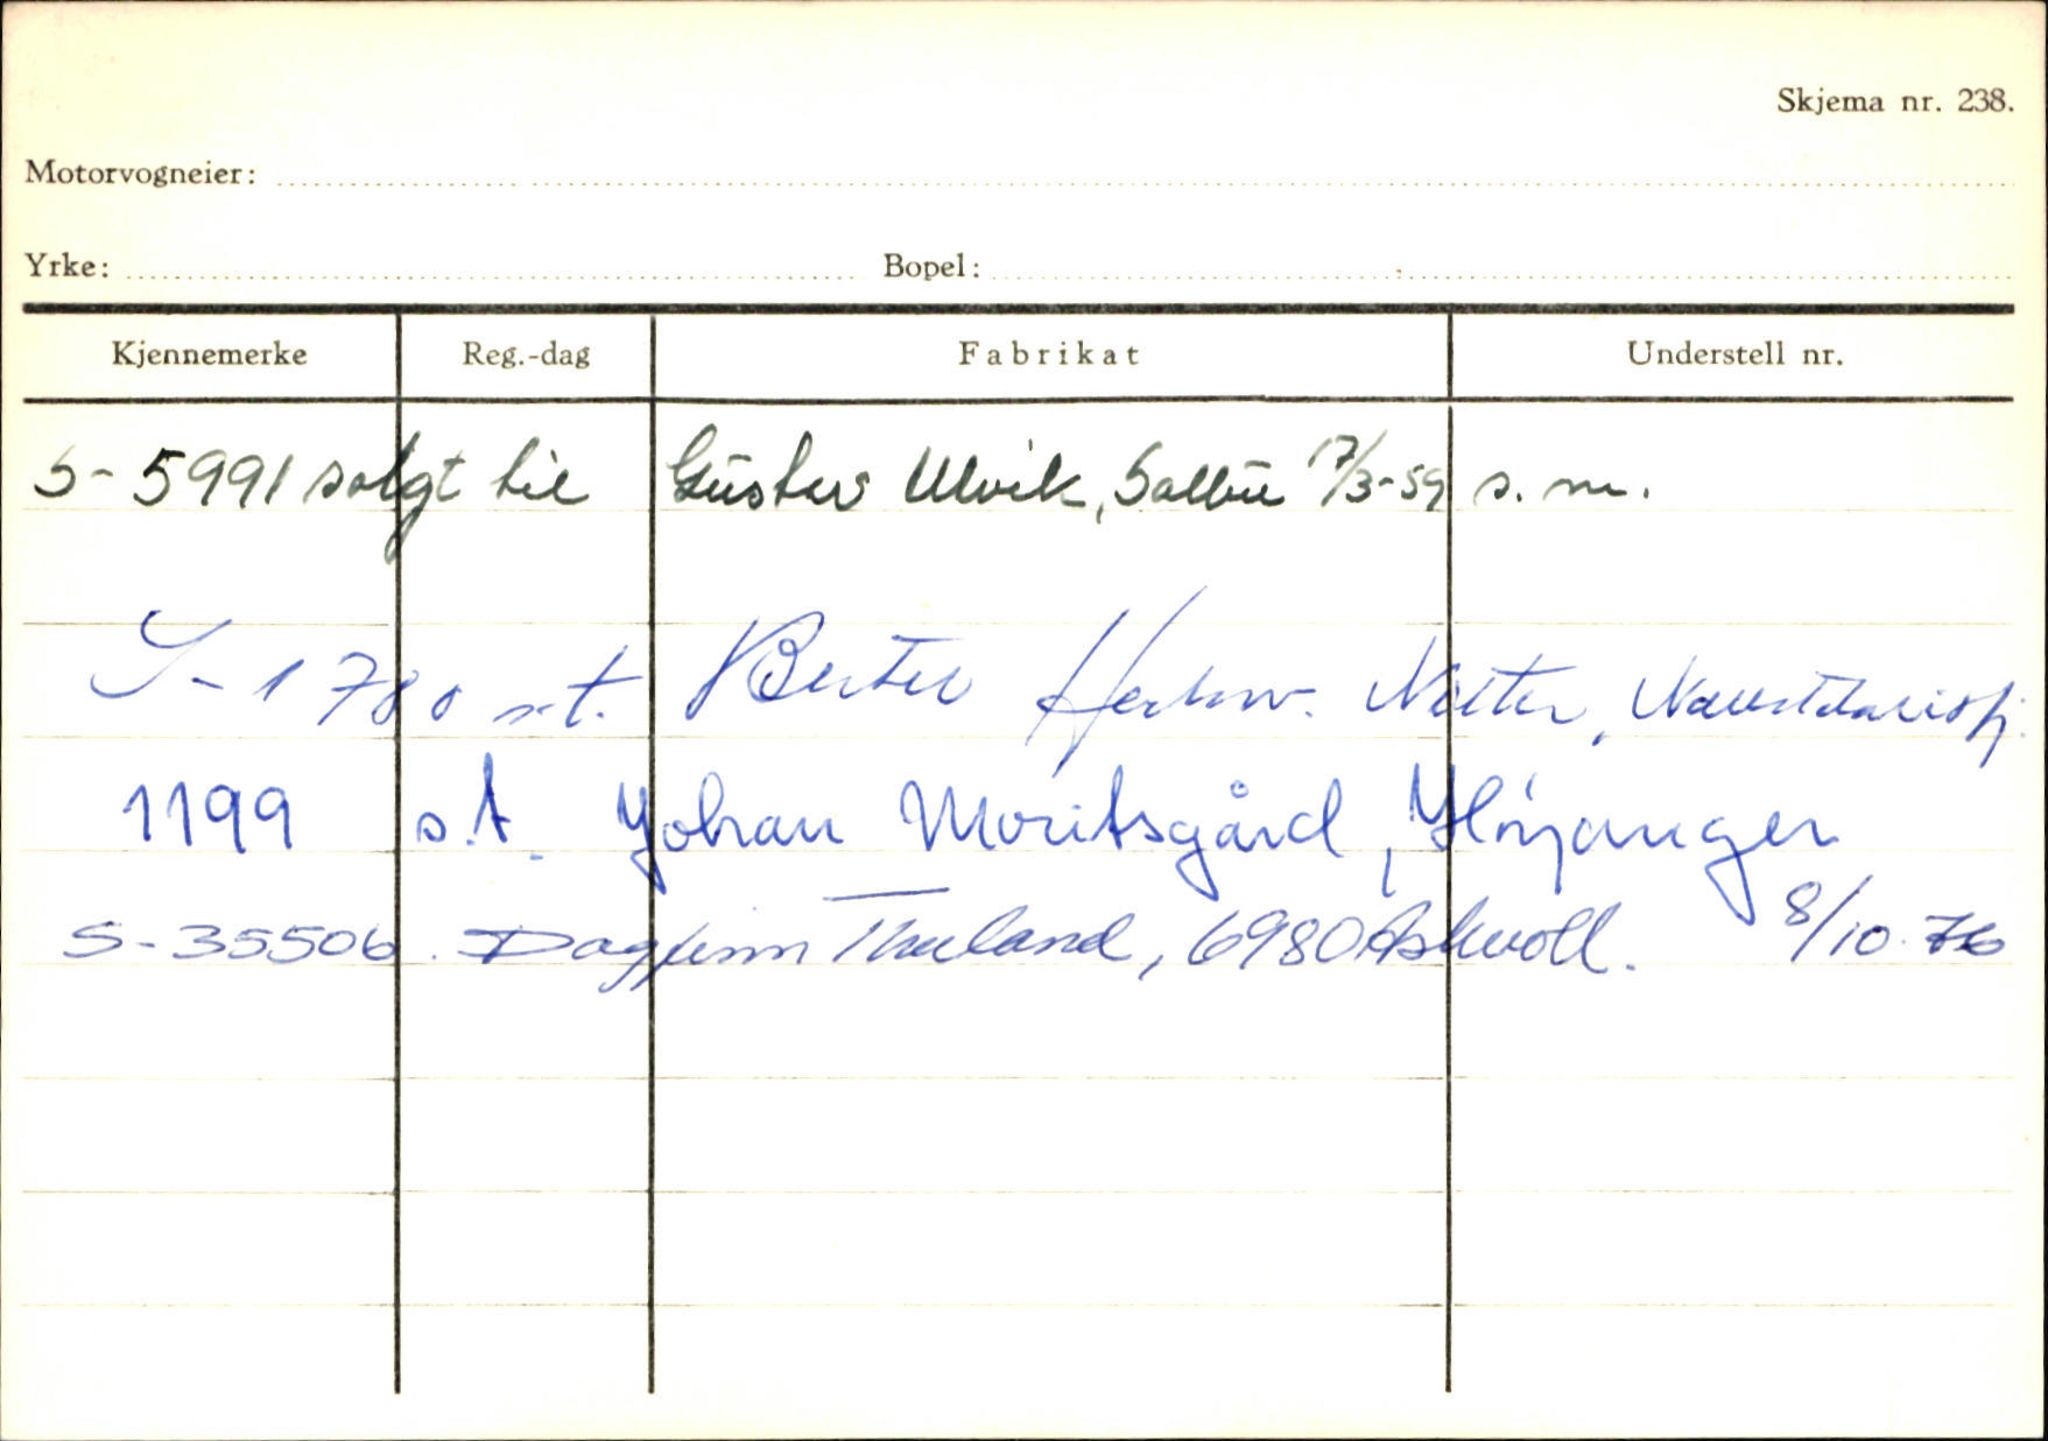 Skjema nr. 238.
Motorvogneier:
Yrke: Bopel:
Kjennemerke Reg.-dag Fabrikat Understell nr.
S-5991 solgt til Gustav Ulvik, Salbu 17/3-59 s. m.
S-1780 s.t. Bertel
1199 s.t. Johan Moritsgård, Höyanger
S-35506. Dagfinn Thuland, 6980 Askvoll. 8/10.76